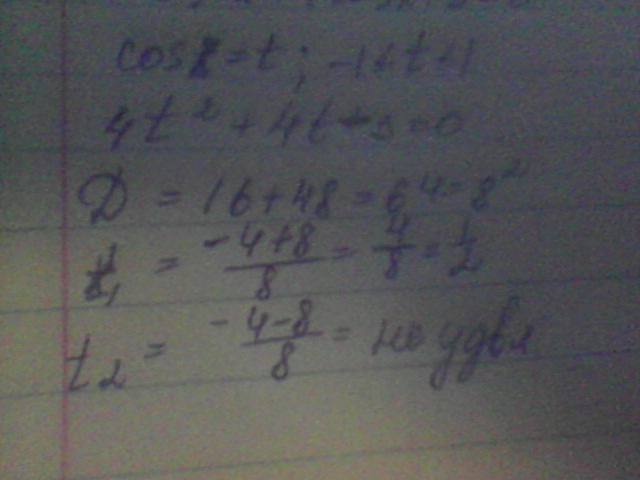 cos x = t; -1 ≤ t ≤ 1
4t² + 4t - 3 = 0
D = 16 + 48 = 64 = 8²
t₁ = \frac{-4+8}{8} = \frac{4}{8} = \frac{1}{2}
t₂ = \frac{-4-8}{8} = не удвл